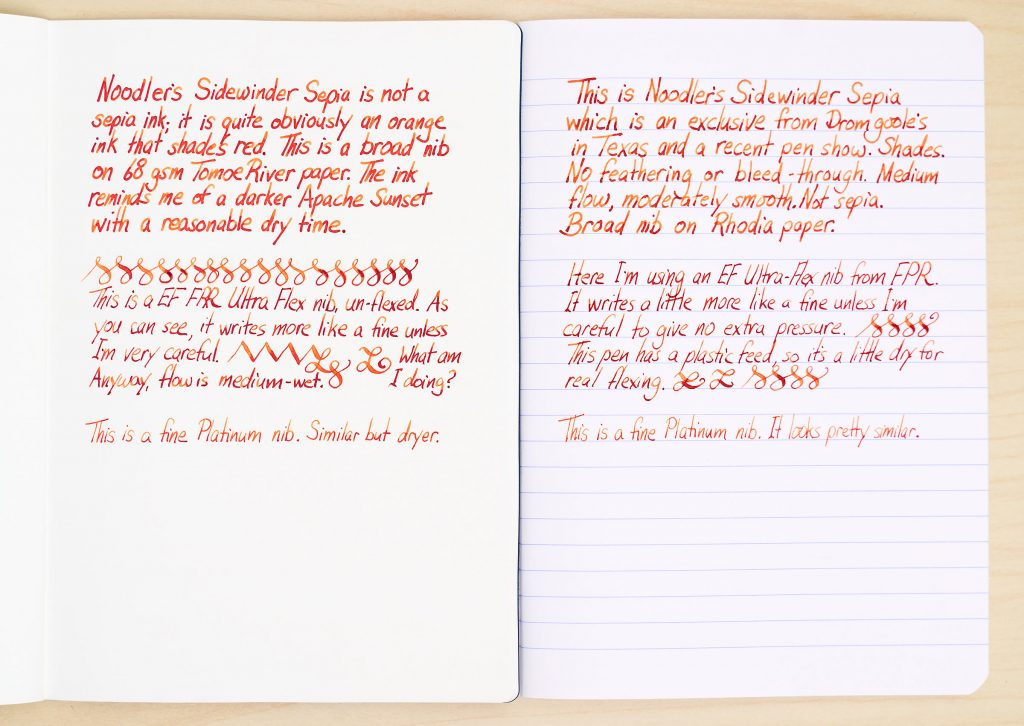 Noodler's Sidewinder Sepia is not a
sepia ink; it is quite obviously an orange
ink that shades red. This is a broad nib
on 68 gsm Tomoe River paper. The ink
reminds me of a darker Apache Sunset
with a reasonable dry time.
This is a EF FPR Ultra Flex nib, un-flexed. As
you can see, it writes more like a fine unless
I'm very careful. What am
Anyway, flow is medium-wet. I doing?
This is a fine Platinum nib. Similar but dryer.
This is Noodler's Sidewinder Sepia
which is an exclusive from Dromgoole's
in Texas and a recent pen show. Shades.
No feathering or bleed-through. Medium
flow, moderately smooth. Not sepia.
Broad nib on Rhodia paper.
Here I'm using an EF Ultra-Flex nib from FPR.
It writes a little more like a fine unless I'm
careful to give no extra pressure.
This pen has a plastic feed, so it's a little dry for
real flexing.
This is a fine Platinum nib. It looks pretty similar.